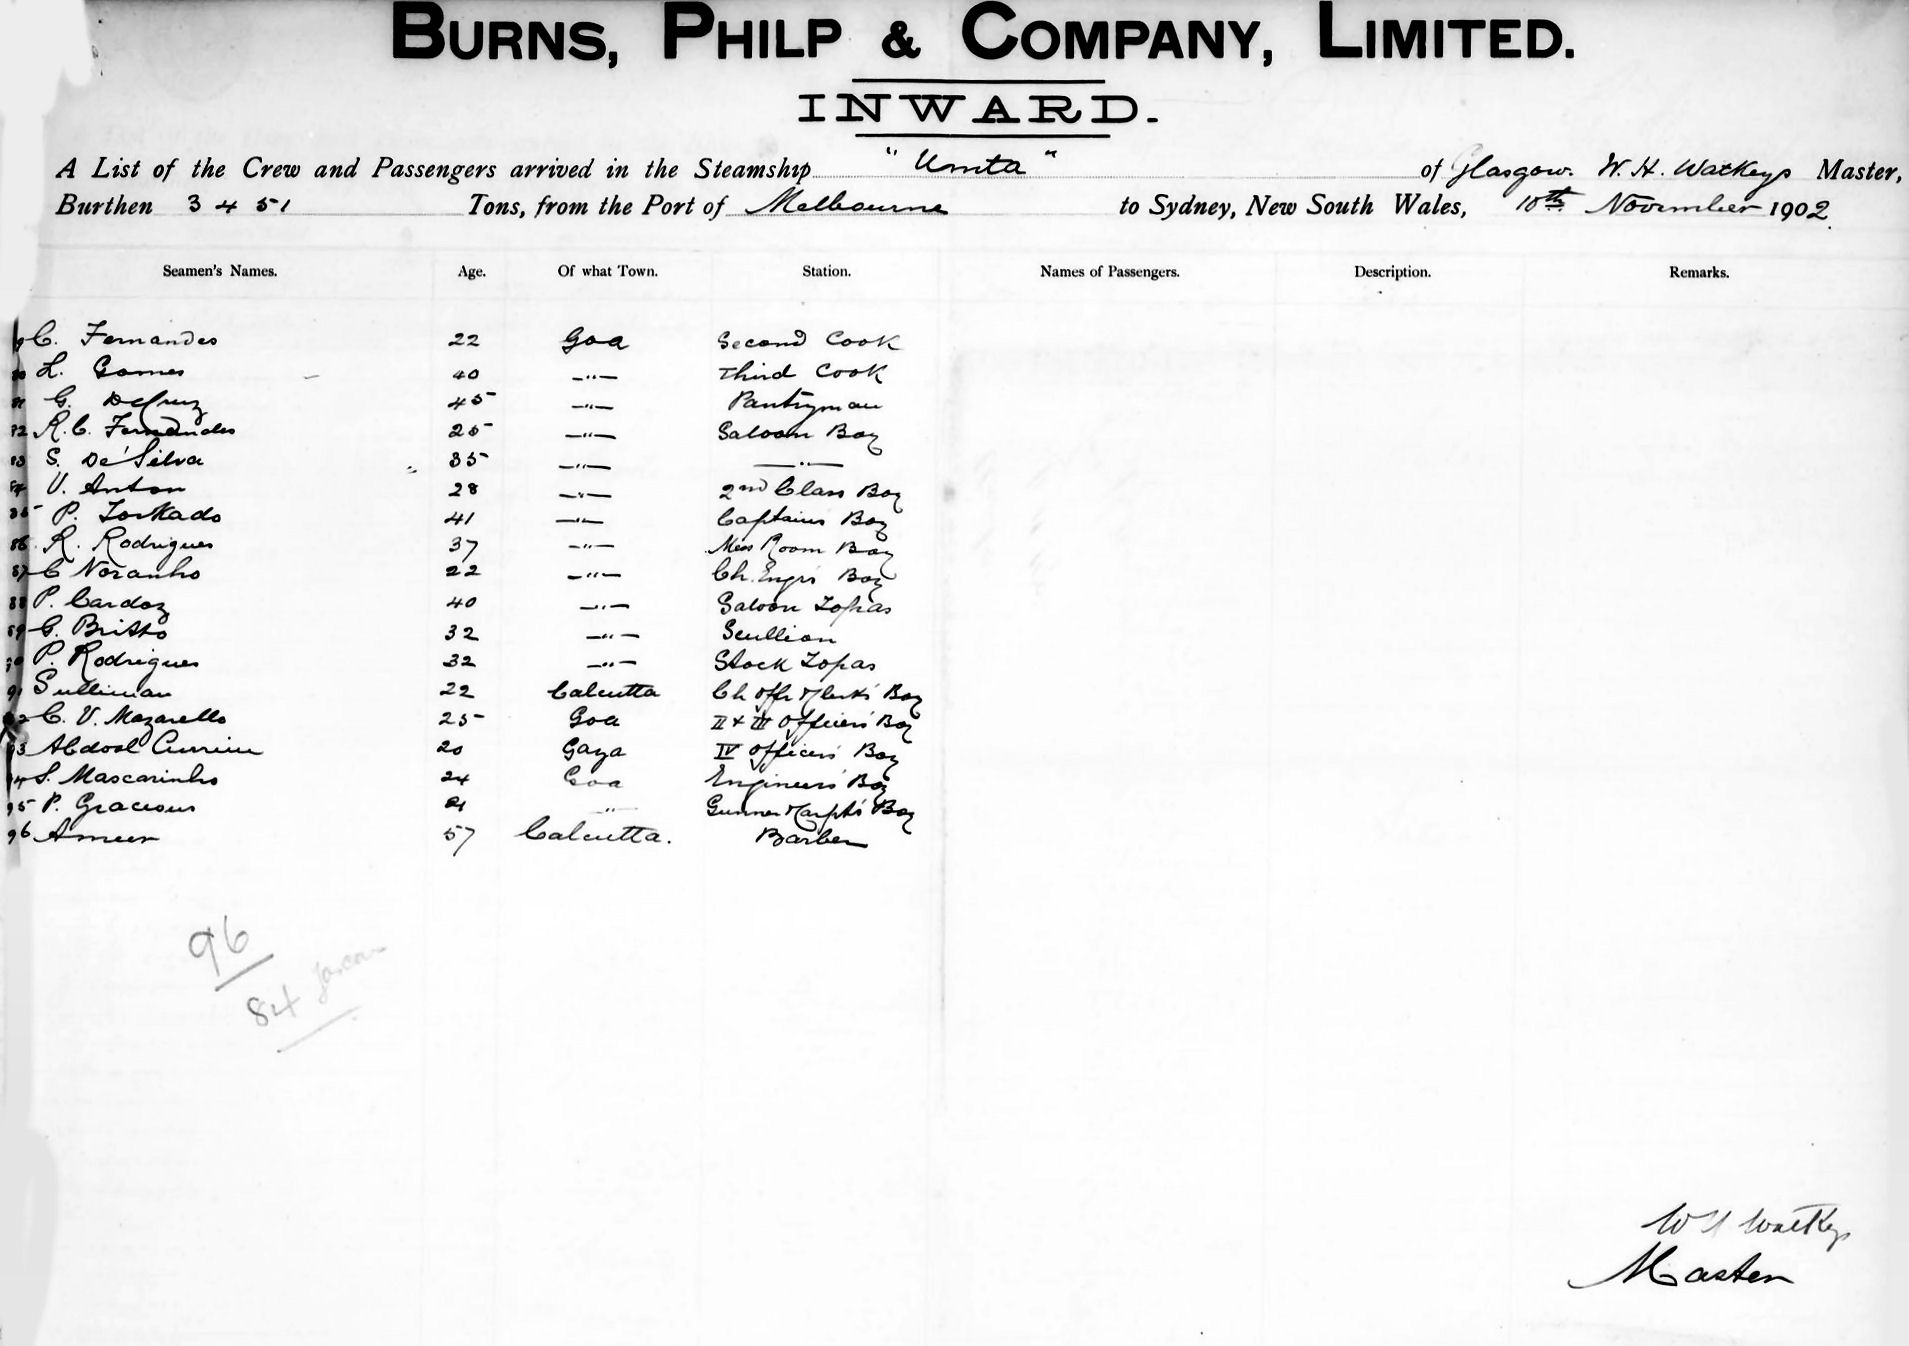 BURNS, PHILP & COMPANY, LIMITED.
INWARD.
A List of the Crew and Passengers arrived in the Steamship "Umta" of Glasgow. W. H. Watkeys Master,
Burthen 3451 Tons, from the Port of Melbourne to Sydney, New South Wales, 10th November 1902.
Seamen's Names. Age. Of what Town. Station. Names of Passengers. Description. Remarks.
C. Fernandes 22 Goa Second Cook
L. Gomes 40 —"— Third Cook
G. DeCruz 45 —"— Pantryman
82 R.C. Fernandes 25 —"— Saloon Boy
83 S. De'Silva 35 —"— —"—
84 V. Anton 28 —"— 2nd Class Boy
85 P. Torkado 41 —"— Captains Boy
86 R. Rodrigues 37 —"— Mess Room Boy
87 C Noranho 22 —"— Ch. Engrs Boy
88 P. Cardoz 40 —"— Saloon Topas
89 G. Britto 32 —"— Scullion
90 P. Rodrigues 32 —"— Stock Topas
91 Sulliman 22 Calcutta Ch Offr & Clerks' Boy
92 C. V. Mazarello 25 Goa II & III Officers' Boy
93 Abdool Currim 20 Gaya IV Officers' Boy
94 S. Mascarinho 24 Goa Engineers' Boy
95 P. Gracious 21 " Gunner & Carpts' Boy
96 Ameer 57 Calcutta. Barber
96
84
W H Watkeys
Master